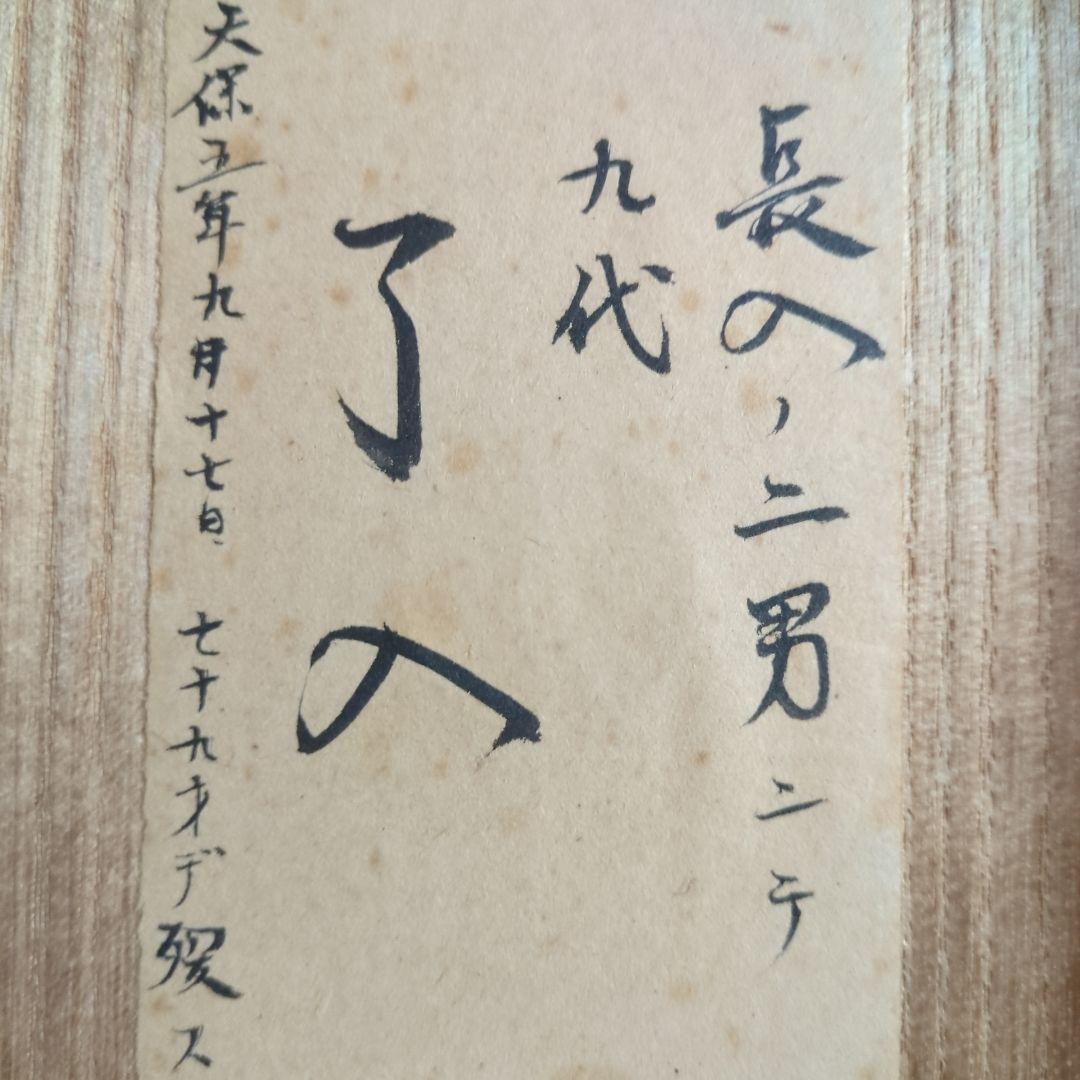 長入ノ二男ニテ
九代
了入
天保五年九月十七日 七十九才デ歿ス